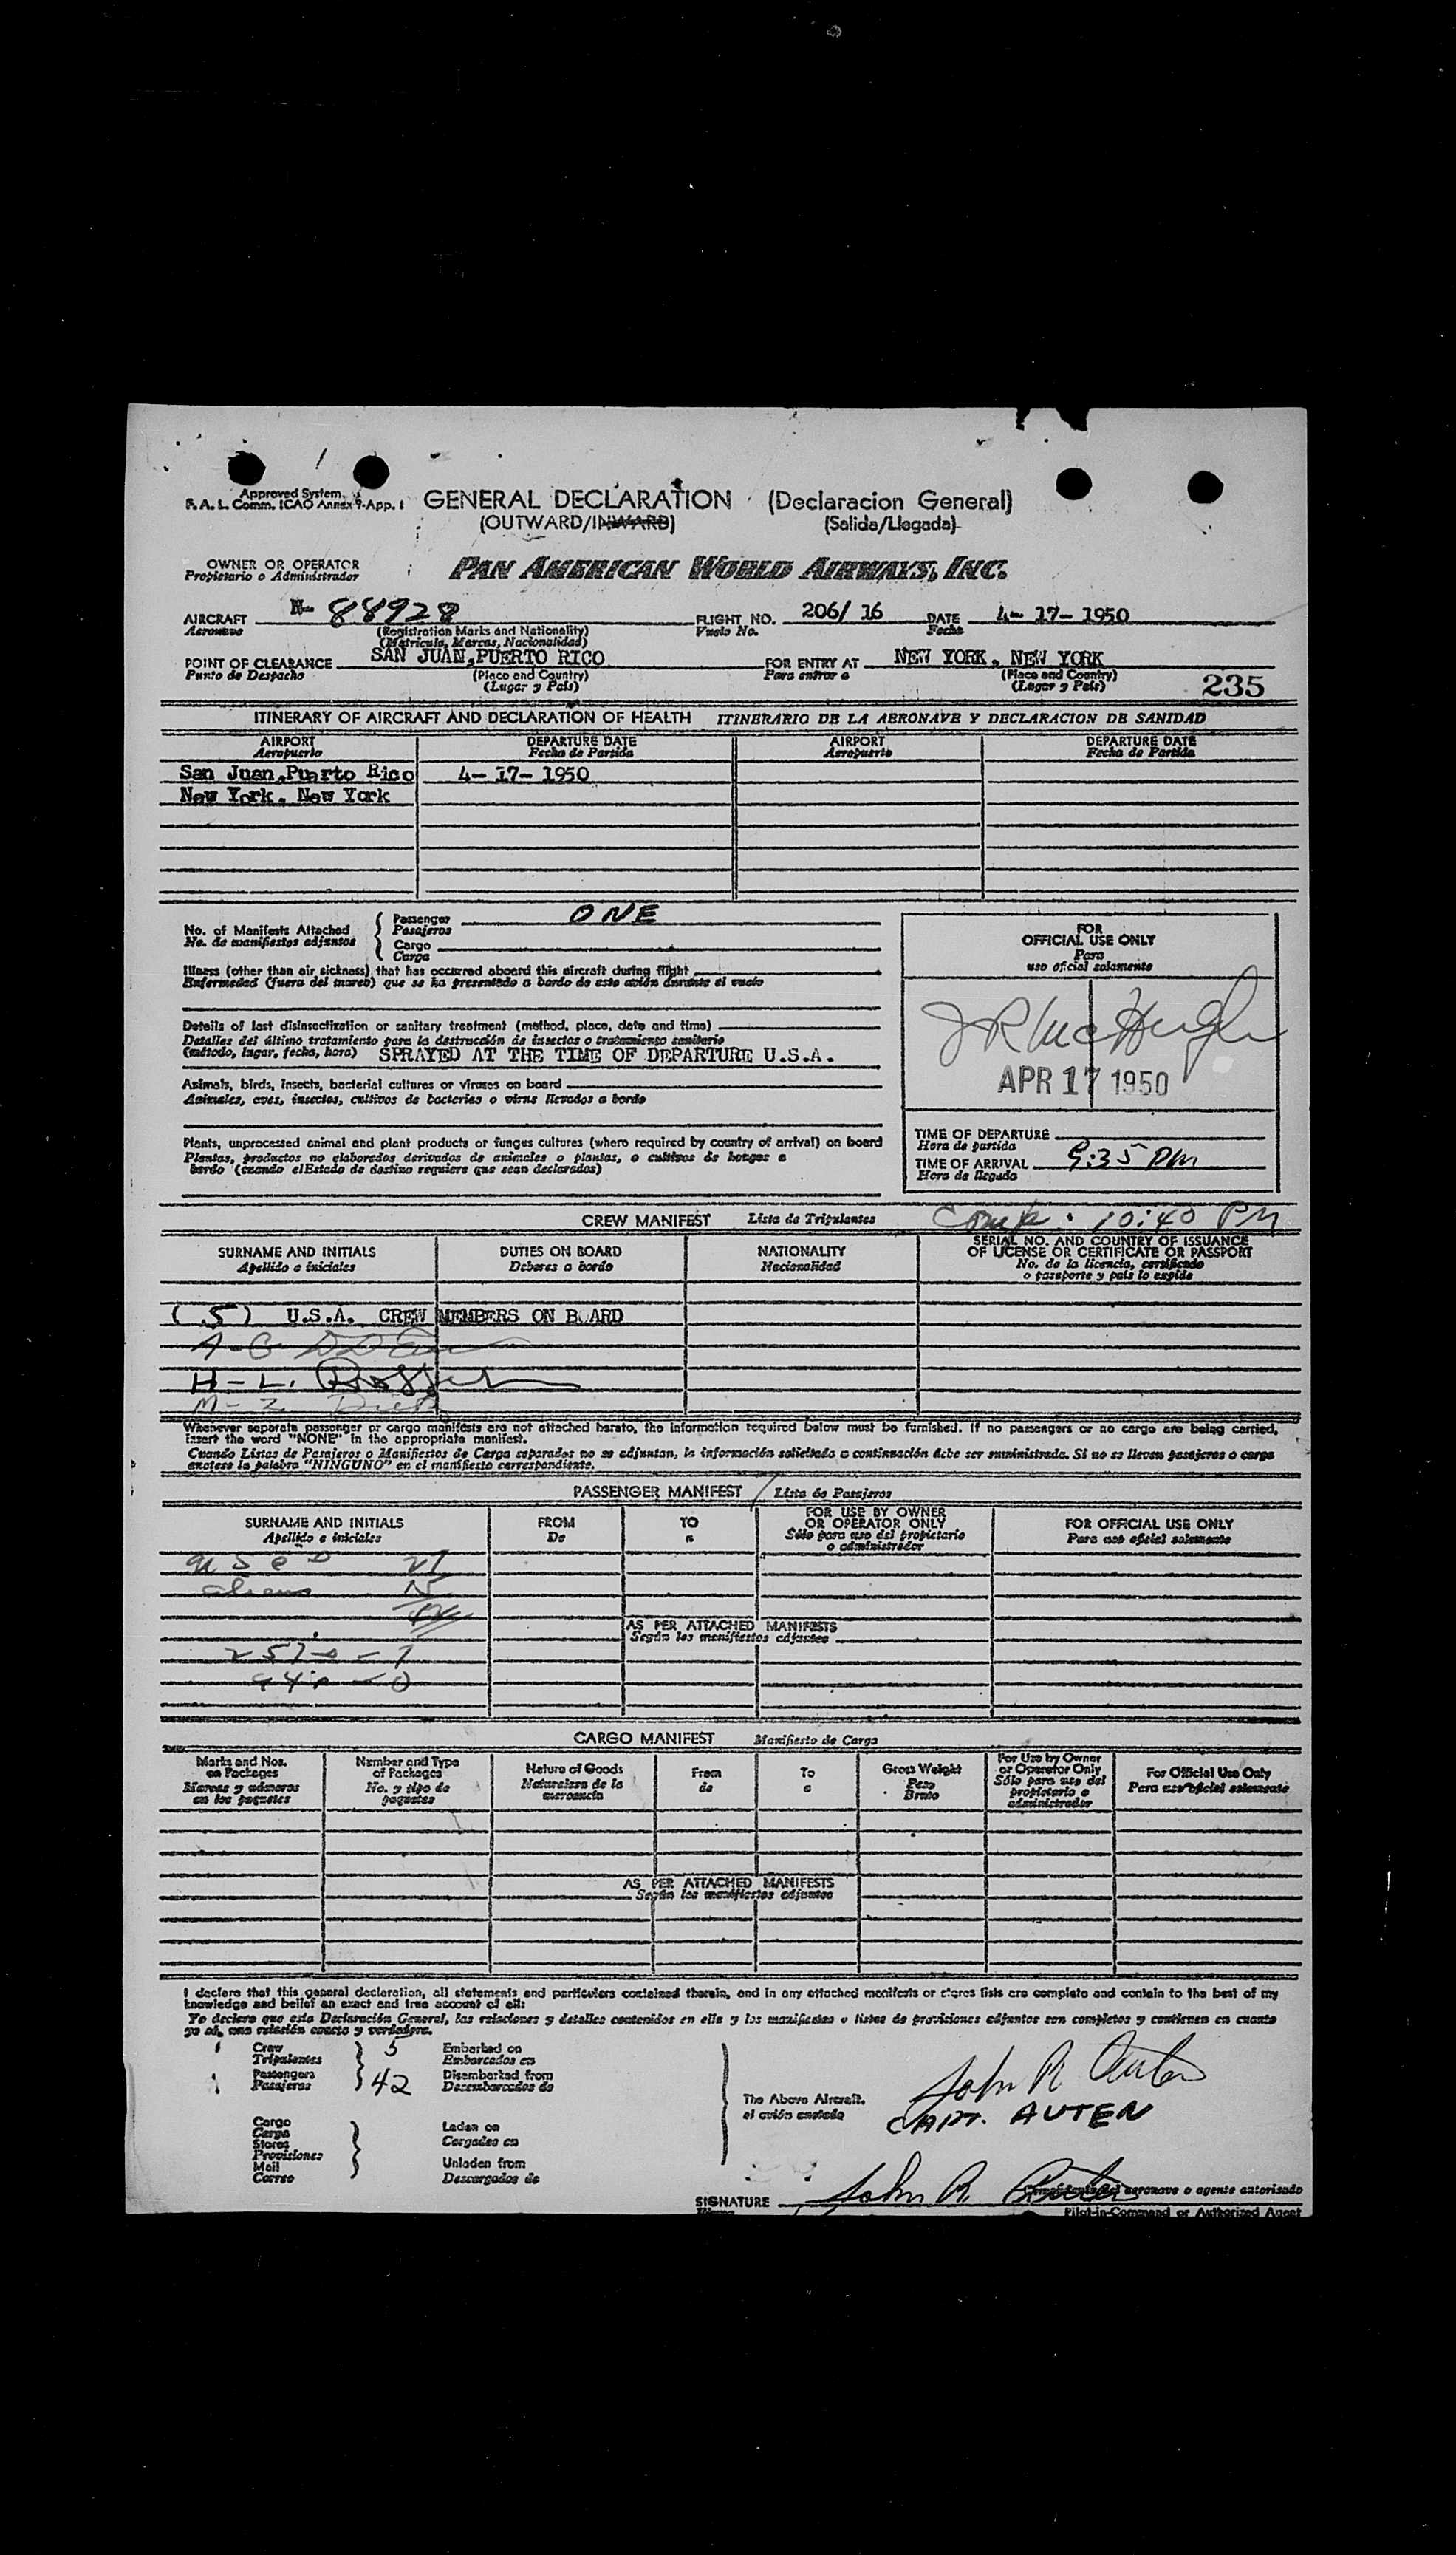 Approved System
F. A. L. Comm. ICAO Annex 9-App. 1
GENERAL DECLARATION (Declaracion General)
(OUTWARD/INWARD) (Salida/Llegada)
OWNER OR OPERATOR
Propietario o Administrador
PAN AMERICAN WORLD AIRWAYS, INC.
AIRCRAFT N- 88928 FLIGHT NO. 206/ 16 DATE 4- 17- 1950
Aeronave (Registration Marks and Nationality) Vuelo No. Fecha
(Matricula, Marcas, Nacionalidad)
POINT OF CLEARANCE SAN JUAN, PUERTO RICO FOR ENTRY AT NEW YORK, NEW YORK
Punto de Despacho (Place and Country) Para entrar a (Place and Country)
(Lugar y Pais) (Lugar y Pais) 235
ITINERARY OF AIRCRAFT AND DECLARATION OF HEALTH ITINERARIO DE LA AERONAVE Y DECLARACION DE SANIDAD
AIRPORT DEPARTURE DATE AIRPORT DEPARTURE DATE
Aeropuerto Fecha de Partida Aeropuerto Fecha de Partida
San Juan,Puerto Rico 4- 17- 1950
New York, New York
No. of Manifests Attached
No. de manifiestos adjuntos
Passenger ONE
Pasajeros
Cargo
Carga
Illness (other than air sickness) that has occurred aboard this aircraft during flight
Enfermedad (fuera del mareo) que se ha presentado a bordo de este avión durante el vuelo
Details of last disinsectization or sanitary treatment (method, place, date and time)
Detalles del último tratamiento para la destrucción de insectos o tratamiento sanitario
(método, lugar, fecha, hora) SPRAYED AT THE TIME OF DEPARTURE U.S.A.
Animals, birds, insects, bacterial cultures or viruses on board
Animales, aves, insectos, cultivos de bacterias o virus llevados a bordo
Plants, unprocessed animal and plant products or fungus cultures (where required by country of arrival) on board
Plantas, productos no elaborados derivados de animales o plantas, o cultivos de hongos a
bordo (cuando el Estado de destino requiere que sean declarados)
FOR
OFFICIAL USE ONLY
Para
uso oficial solamente
J R McHugh
APR 17 1950
TIME OF DEPARTURE
Hora de partida
TIME OF ARRIVAL 9:35 PM
Hora de llegada
CREW MANIFEST Lista de Tripulantes Comp. 10:40 PM
SURNAME AND INITIALS DUTIES ON BOARD NATIONALITY SERIAL NO. AND COUNTRY OF ISSUANCE
OF LICENSE OR CERTIFICATE OR PASSPORT
Apellido e iniciales Deberes a bordo Nacionalidad No. de la licencia, certificado
o pasaporte y pais lo expide
(5) U.S.A. CREW MEMBERS ON BOARD
A-G
H-L.
M-Z
Whenever separate passenger or cargo manifests are not attached hereto, the information required below must be furnished. If no passengers or no cargo are being carried,
insert the word "NONE" in the appropriate manifest.
Cuando Listas de Pasajeros o Manifiestos de Carga separados no se adjuntan, la información solicitada a continuación debe ser suministrada. Si no se llevan pasajeros o carga
anótese la palabra "NINGUNO" en el manifiesto correspondiente.
PASSENGER MANIFEST Lista de Pasajeros
SURNAME AND INITIALS FROM TO FOR USE BY OWNER
OR OPERATOR ONLY FOR OFFICIAL USE ONLY
Apellido e iniciales De a Sólo para uso del propietario
o administrador Para uso oficial solamente
aliens
AS PER ATTACHED MANIFESTS
Según los manifiestos adjuntos
CARGO MANIFEST Manifiesto de Carga
Marks and Nos.
on Packages
Marcas y números
en los paquetes
Number and Type
of Packages
No. y tipo de
paquetes
Nature of Goods
Naturaleza de la
mercancía
From
de
To
a
Gross Weight
Peso
Bruto
For Use by Owner
or Operator Only
Sólo para uso del
propietario o
administrador
For Official Use Only
Para uso oficial solamente
AS PER ATTACHED MANIFESTS
Según los manifiestos adjuntos
I declare that this general declaration, all statements and particulars contained therein, and in any attached manifests or stores lists are complete and contain to the best of my
knowledge and belief an exact and true account of all:
Yo declaro que esta Declaración General, las relaciones y detalles contenidos en ella y los manifiestos o listas de provisiones adjuntos son completos y contienen en cuanto
yo sé, una relación exacta y verdadera.
Crew 5 Embarked on
Tripulantes Embarcados en
Passengers 42 Disembarked from
Pasajeros Desembarcados de
The Above Aircraft.
el avión anotado
John R Auten
CAPT. AUTEN
Cargo
Carga
Stores
Provisiones
Mail
Correo
Laden on
Cargados en
Unladen from
Descargados de
SIGNATURE John R. Auten
aeronave o agente autorizado
Pilot-in-Command or Authorized Agent